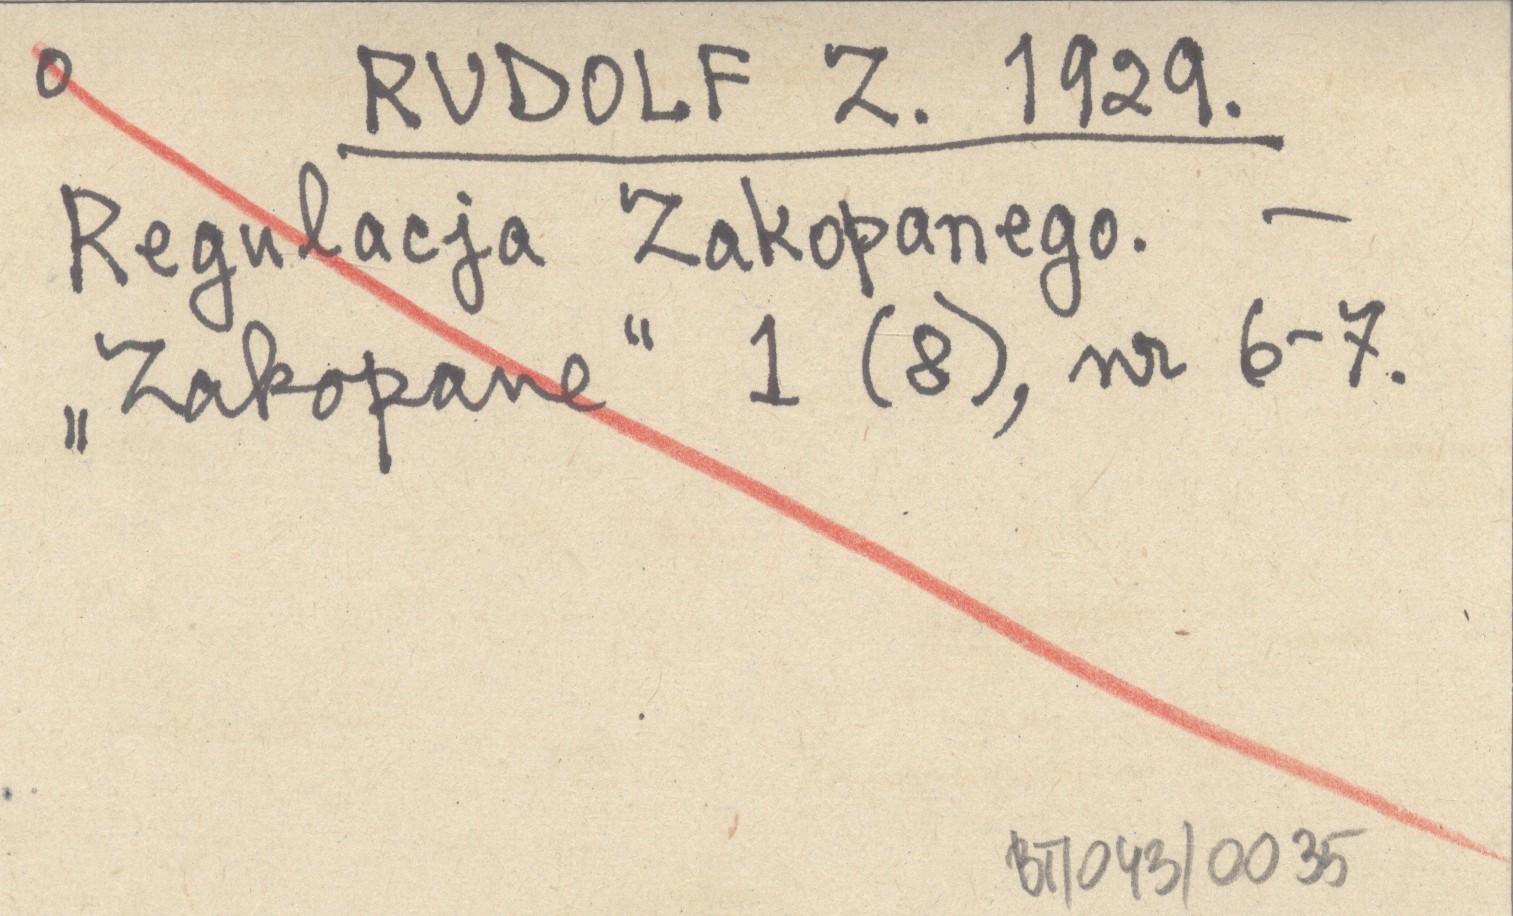 o RUDOLF Z. 1929.
Regulacja Zakopanego. –
„Zakopane“ 1 (8), nr 6-7.
BT/043/0035